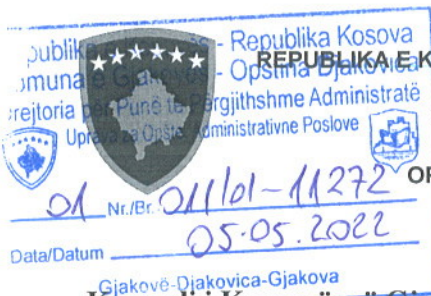 publika e Kosovës - Republika Kosova
REPUBLIKA E K
omuna e Gjakovës - Opština Djakovica
rejtoria për Punë të Përgjithshme Administratë
Uprava za Opšte Administrativne Poslove
01 Nr./Br. 011/01-11272
OF
Data/Datum 05-05.2022
Gjakovë-Djakovica-Gjakova